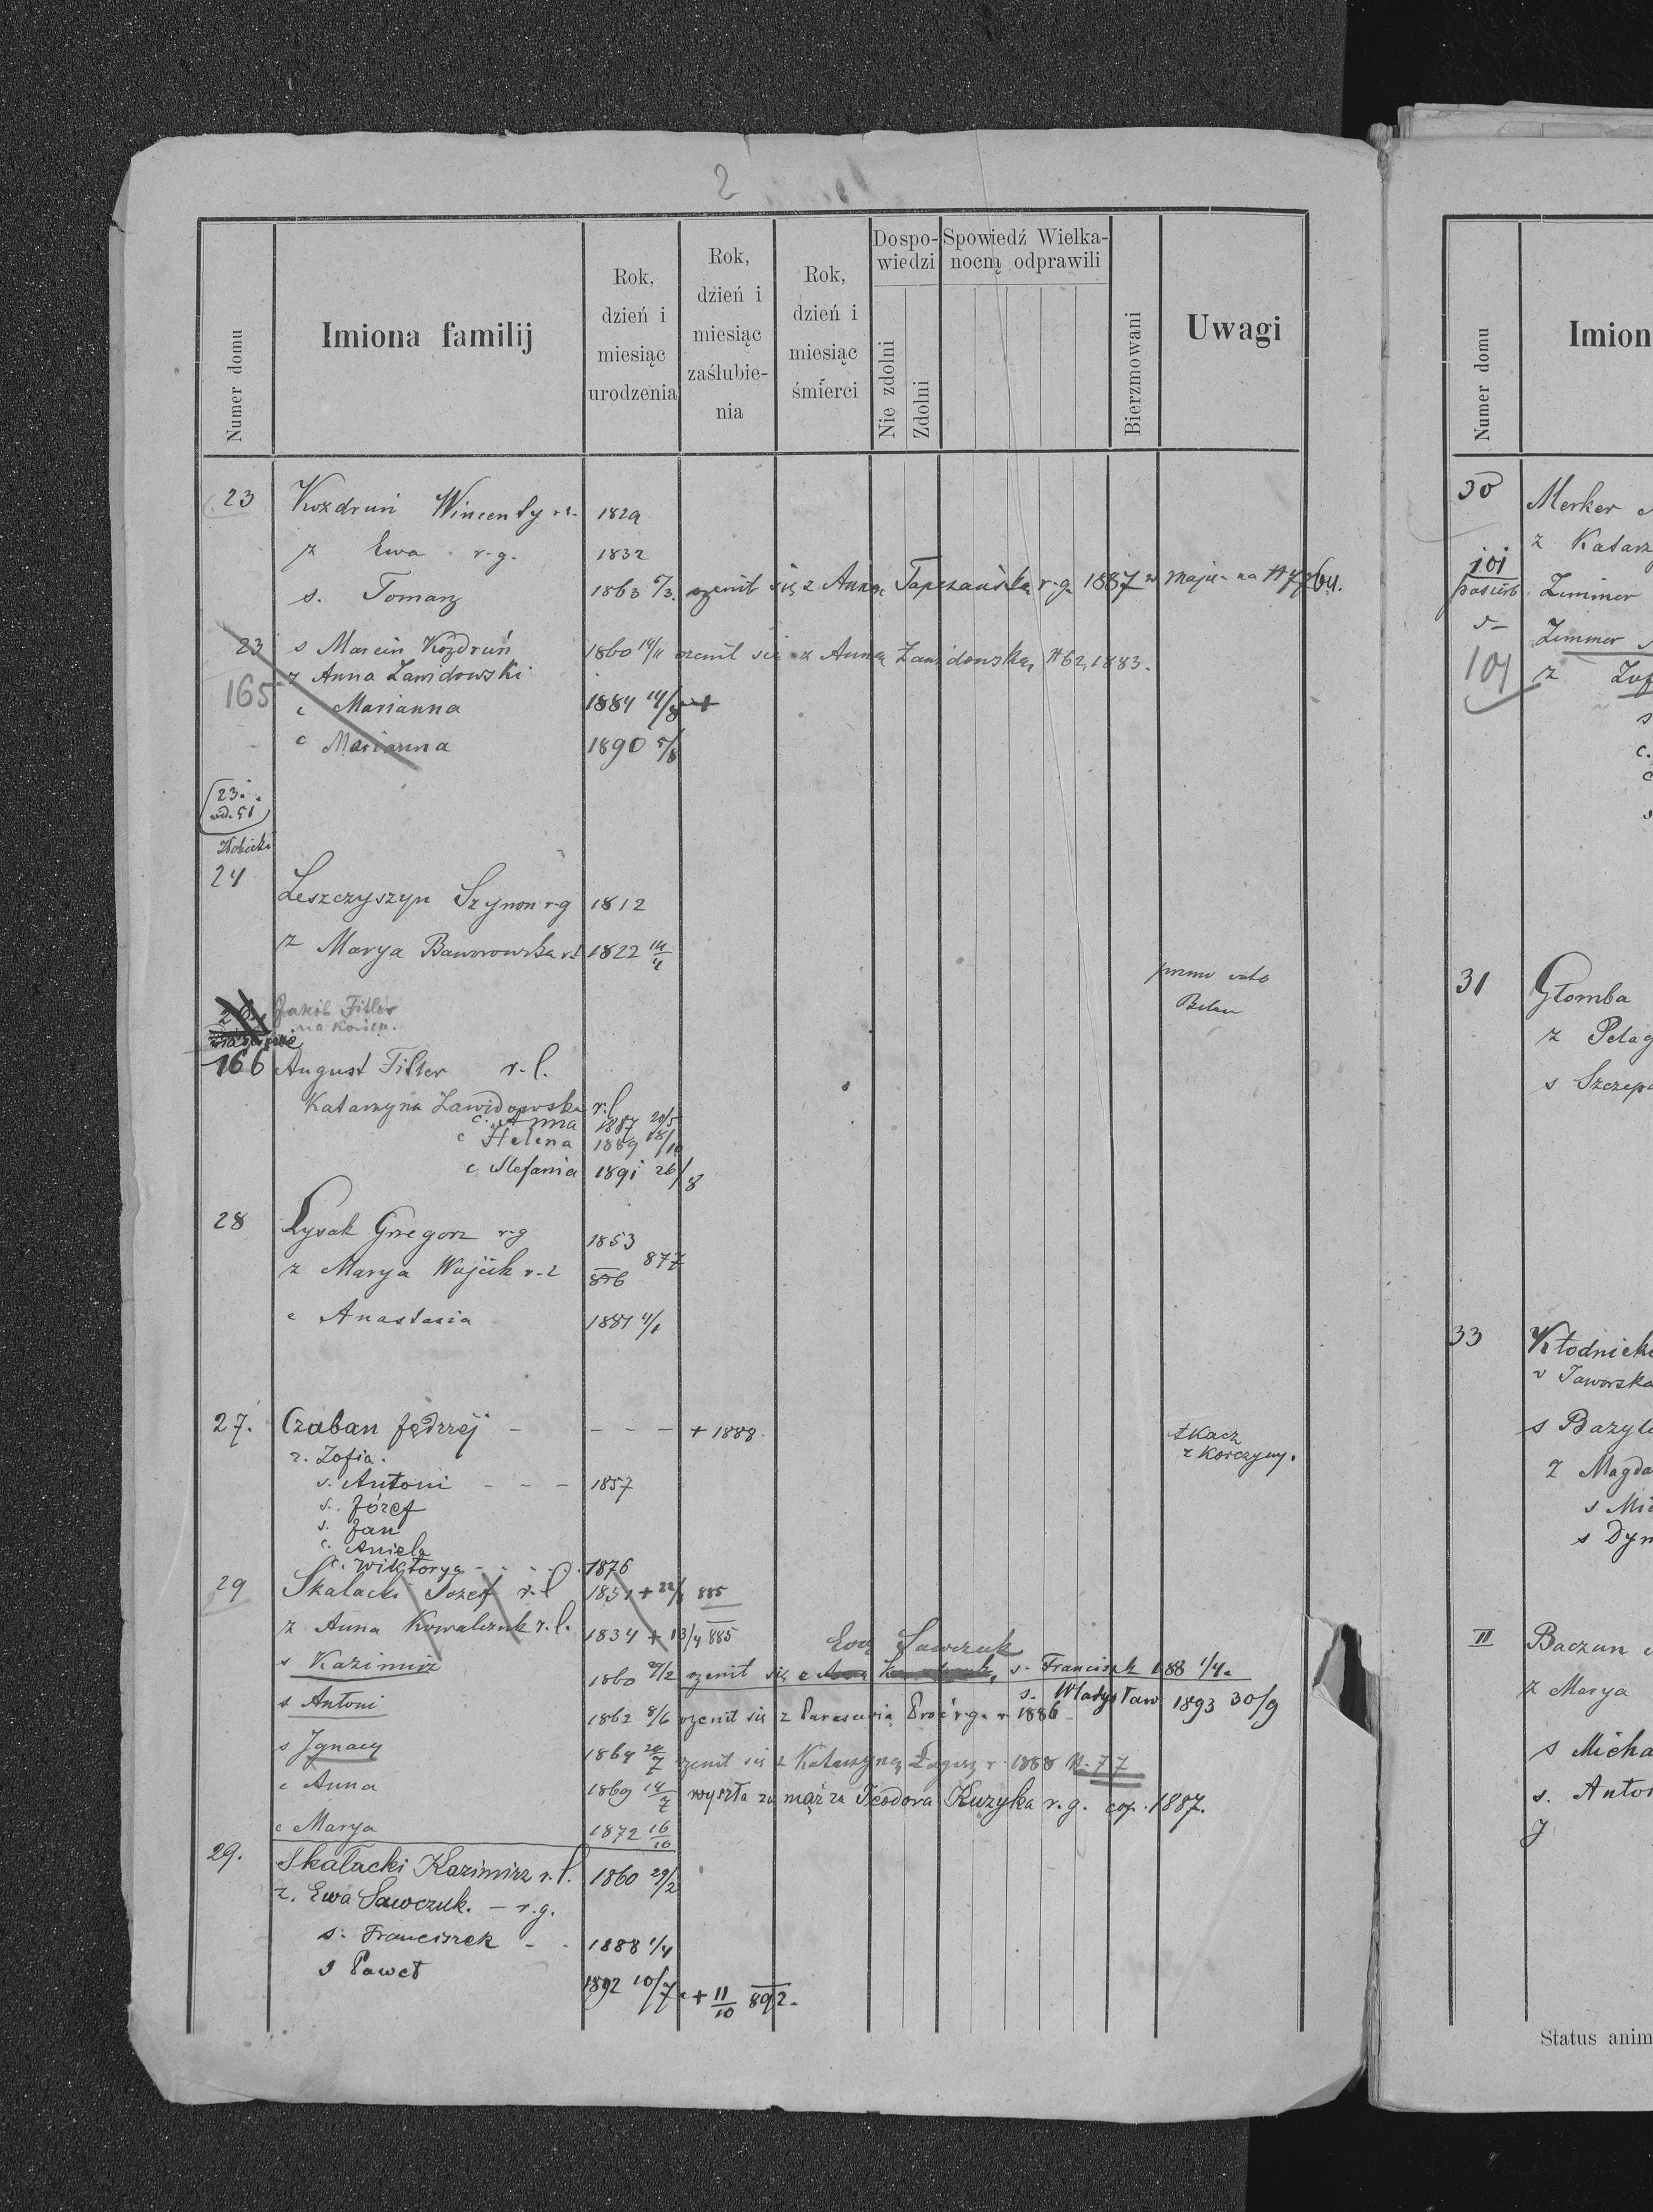 2
Numer domu
Imiona familij
Rok, dzień i miesiąc urodzenia
Rok, dzień i miesiąc zaślubie-nia
Rok, dzień i miesiąc śmierci
Dospo-wiedzi
Nie zdolni
Zdolni
Spowiedź Wielka-nocną odprawili
Bierzmowani
Uwagi
23 Kozdruń Wincenty 1829
ż Ewa r-g. 1832
s. Tomasz 1863 5/3. ożenił się z Anną r-g. 1887 w maju - na
23 s Marcin Kozdruń 1860 14/11 ożenił się z Anną Zawidowską #62, 1883.
165 ż Anna Zawidowski
c Marianna 1884 14/8 +
c Marianna 1890 5/8
23.
24 Leszczyszyn Szymon r-g 1812
ż Marya Baworowska 1822 14/4
Belan
Jakób Fitler
166 August Fitler r-l.
Katarzyna Zawidowska r.l
c. Anna 1887 20/5
c Helena 1889 18/10
c. Stefania 1891 26/8
28 Łysak Grzegorz r-g 1853
ż Marya Wujcik 856 877
c Anastazia 1881 4/1
27. Czaban Jędrzej - - - - + 1888. tkacz
z. Zofia. z Korczyny.
s. Antoni - - - 1857
s. Józef
s. Jan
c. Aniela
c. Wiktorya - - - 1876
29 Skałacki Józef r-l 1851 + 885
ż Anna Kowalczuk r.l. 1834 + 13/4 885
Ewą Sawczuk
s Kazimirz 1860 29/2 ożenił się z s. Franciszek 188 1/4.
s. Władysław 1893 30/9
s Antoni 1862 8/6 ożenił się z Parascewią r-g. 1886
s Ignacy 1864 20/7 ożenił się z Katarzyną r. 1888 N-77
c Anna 1869 14/7 wyszła za mąż za Teodora Kuzyka r.g. cop. 1887.
c Marya 1872 16/10
29. Skałacki Kazimirz r.l. 1860 29/2
ż. Ewa Sawczuk. - r.g.
s. Franciszek - - 1888 1/4
s Paweł 1892 10/7. + 11/10 892.
Numer domu
Imion
30 Merker
ż Katarz
101
pasierb Zimmer
Zimmer
101 ż Zof
s
c.
c
s
31 Głomba
ż Pelag
s Szczepa
33 Kłodnicki
Jaworska
s Bazyli
ż Magda
s Mic
s Dym
II Baczun
ż Marya
s Micha
s. Anton
J
Status anim